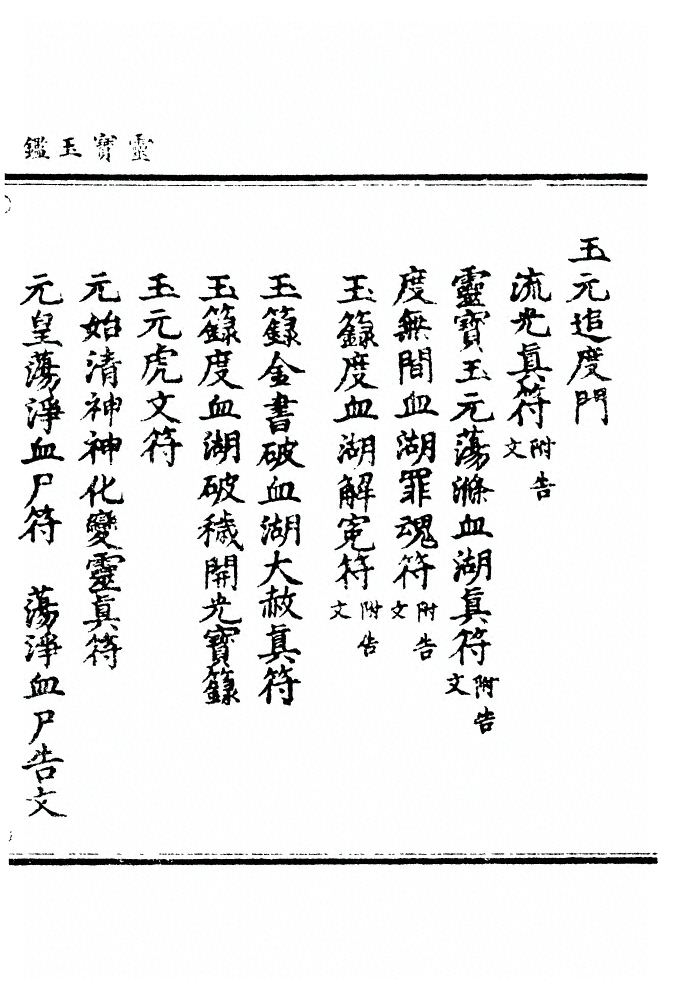 靈寶玉鑑
玉元追度門
流光眞符附告文
靈寶玉元蕩滌血湖眞符附告文
度無間血湖罪魂符附告文
玉籙度血湖解寃符附告文
玉籙金書破血湖大赦眞符
玉籙度血湖破穢開光寶籙
玉元虎文符
元始清神神化變靈眞符
元皇蕩淨血尸符　蕩淨血尸告文